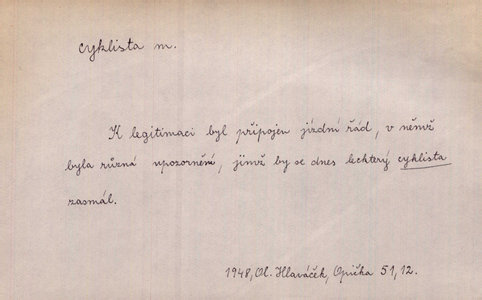 cyklista m.
K legitimaci byl připojen jízdní řád, v němž
byla různá upozornění, jimž by se dnes leckterý cyklista
zasmál.
1948, Ol. Hlaváček, Opička 51, 12.